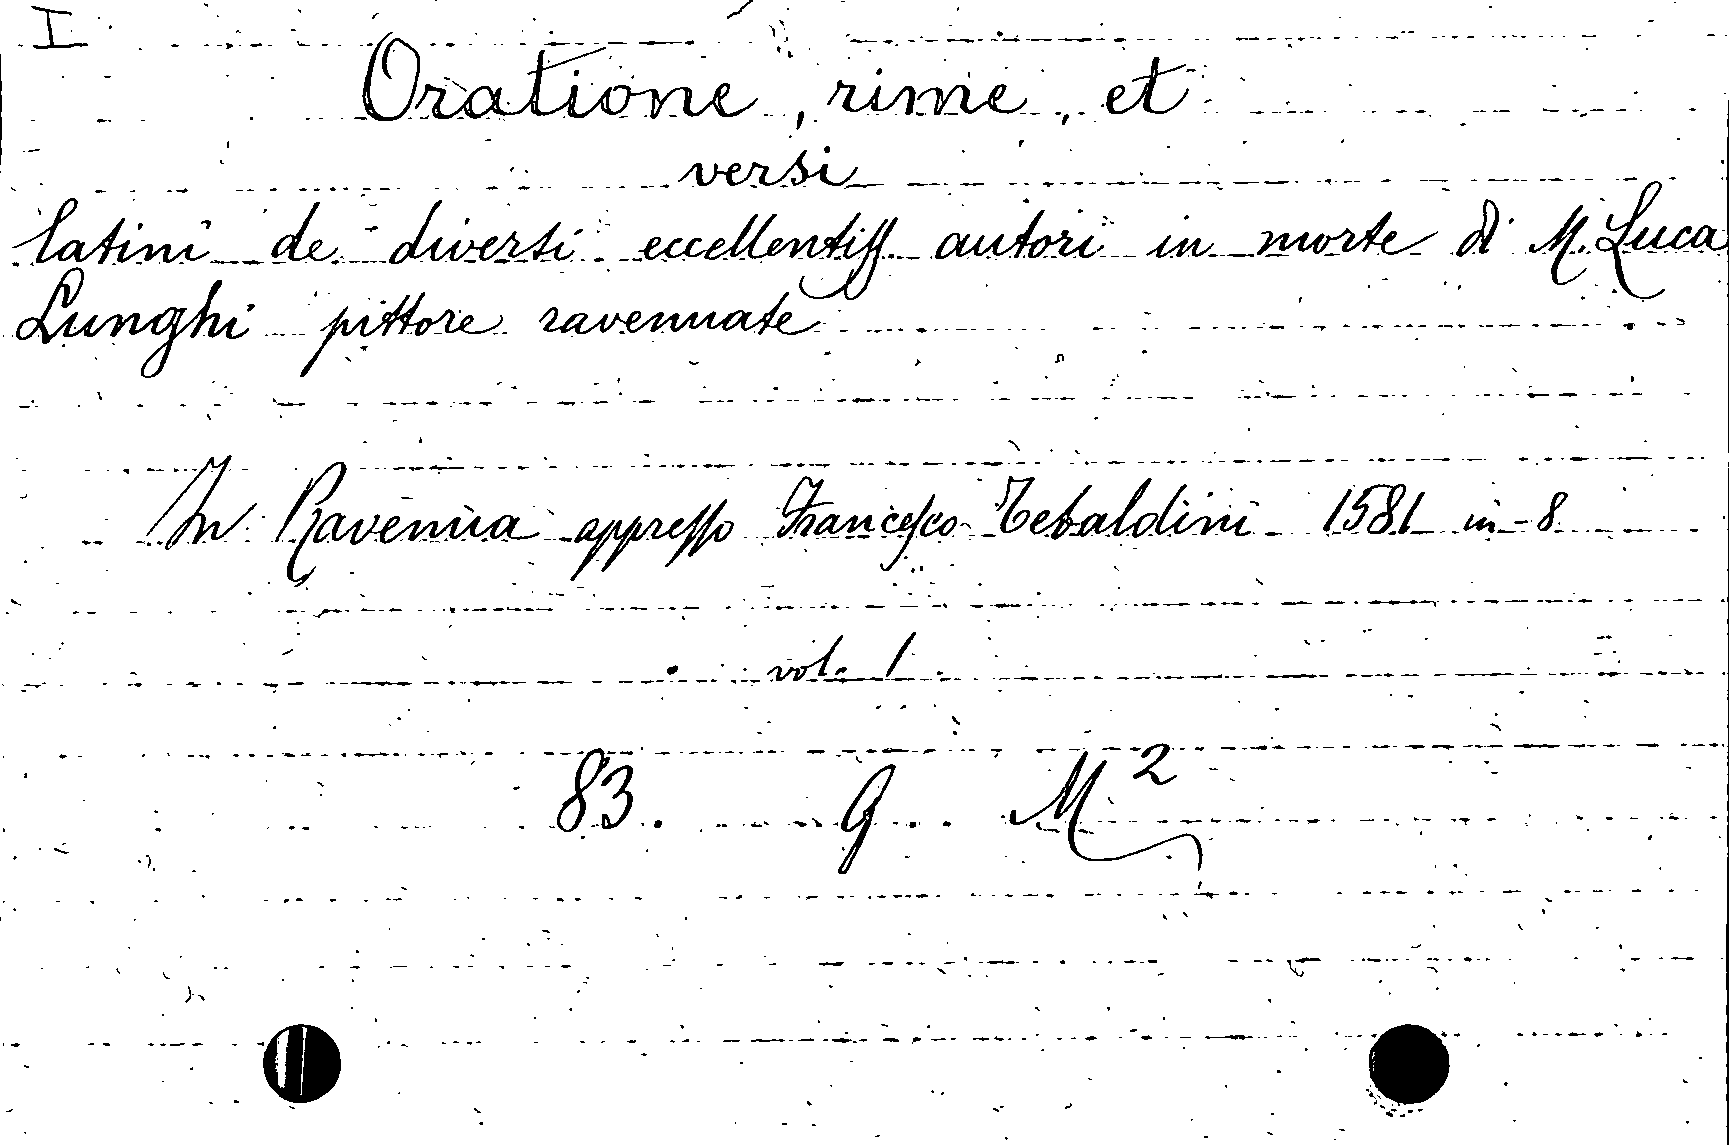 I
Oratione, rime, et
versi
latini de diversi eccellentiss. autori in morte di M. Luca
Lunghi pittore ravennate
In Ravenna appresso Francesco Tebaldini 1581 in-8
vol. 1
83. 9. M²